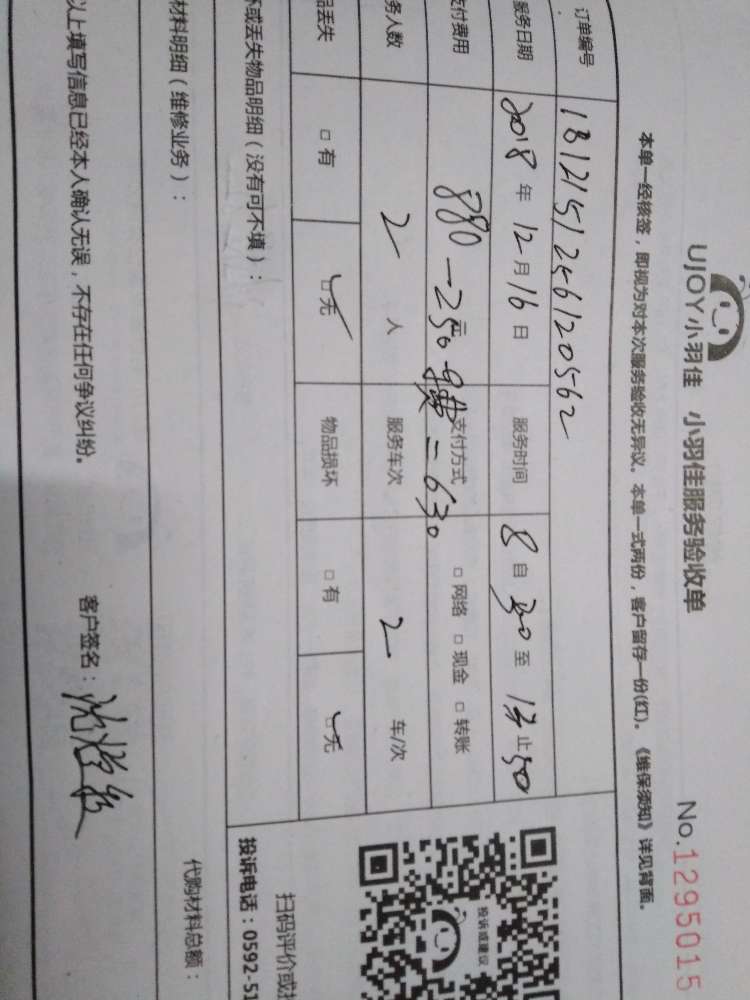 UJOY小羽佳 小羽佳服务验收单
No.1295015
本单一经核签，即视为对本次服务验收无异议。本单一式两份，客户留存一份(红)。《维保须知》详见背面。
订单编号 1812151256120562
服务日期 2018年12月16日 服务时间 8自30至 止50
支付费用 880-250 元 =630 支付方式 □网络 □现金 □转账
务人数 2人 服务车次 2车/次
品丢失 □有 □无 物品损坏 □有 □无
坏或丢失物品明细（没有可不填）：
材料明细（维修业务）： 代购材料总额：
以上填写信息已经本人确认无误，不存在任何争议纠纷。 客户签名：
投诉或建议
扫码评价或投
投诉电话：0592-51